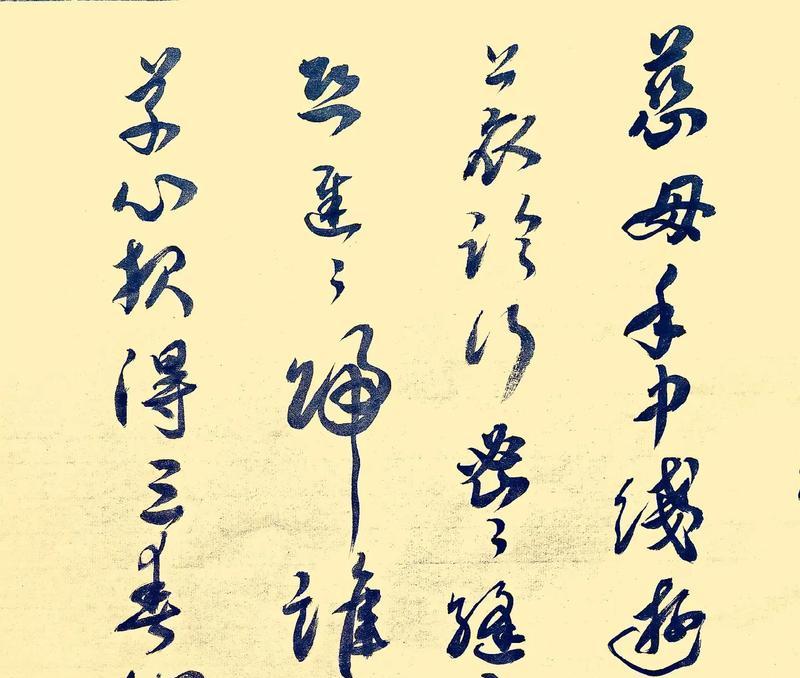 慈母手中綫遊
上衣臨行密〻縫
恐遲〻歸誰
草心報得三春